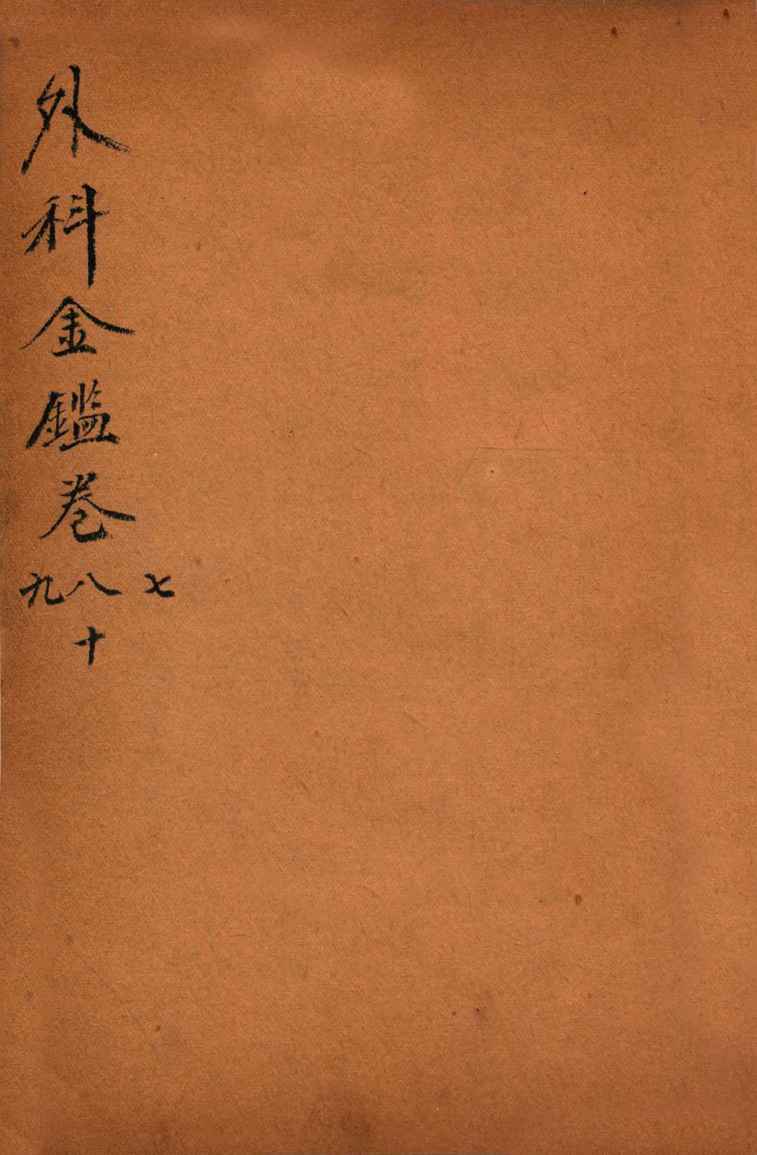 外科金鑑卷
七
八
九
十